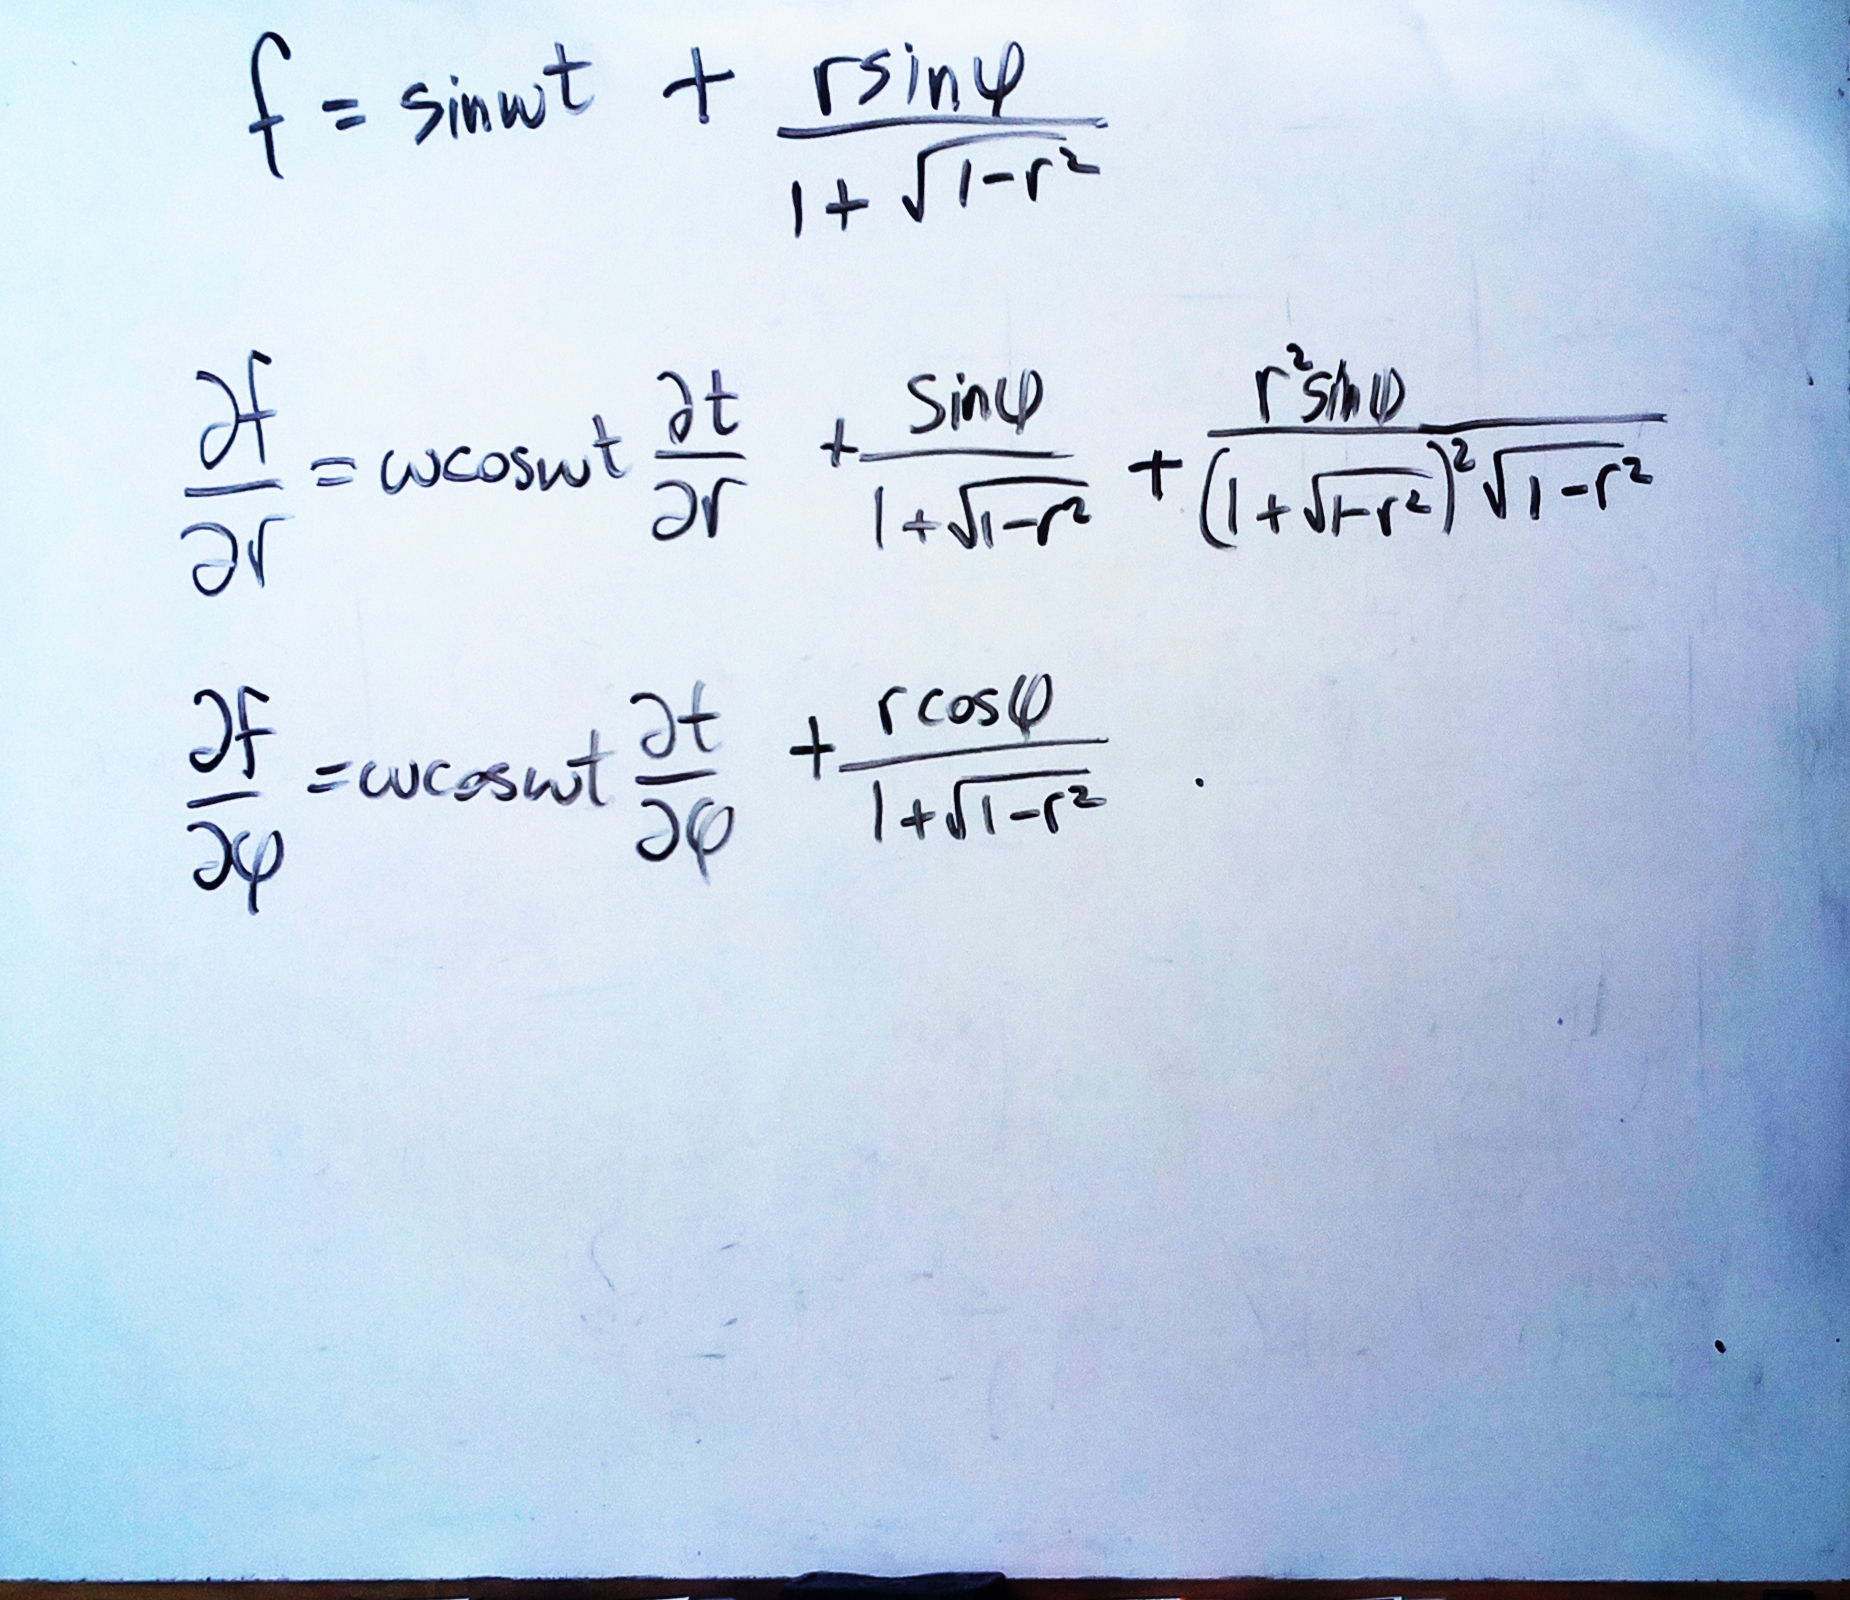 f = sinωt + \frac{r sinφ}{1+\sqrt{1-r^2}}
\frac{∂f}{∂r} = ωcosωt \frac{∂t}{∂r} + \frac{sinφ}{1+\sqrt{1-r^2}} + \frac{r^2 sinφ}{(1+\sqrt{1-r^2})^2 \sqrt{1-r^2}}
\frac{∂f}{∂φ} = ωcosωt \frac{∂t}{∂φ} + \frac{r cosφ}{1+\sqrt{1-r^2}} .